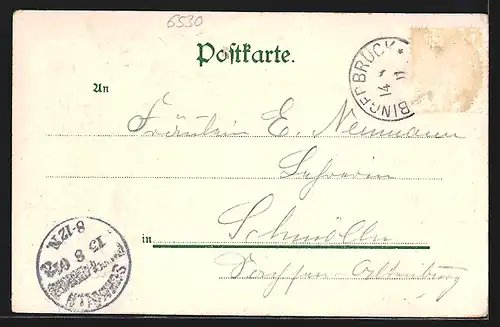 6530
Postkarte.
BINGERBRÜCK *
14
11
An
Fräulein E. Neumann
Lehrerin
in Schmölln
Sachsen-Altenburg
SCHMÖLLN
15 8 03
8-12.N.